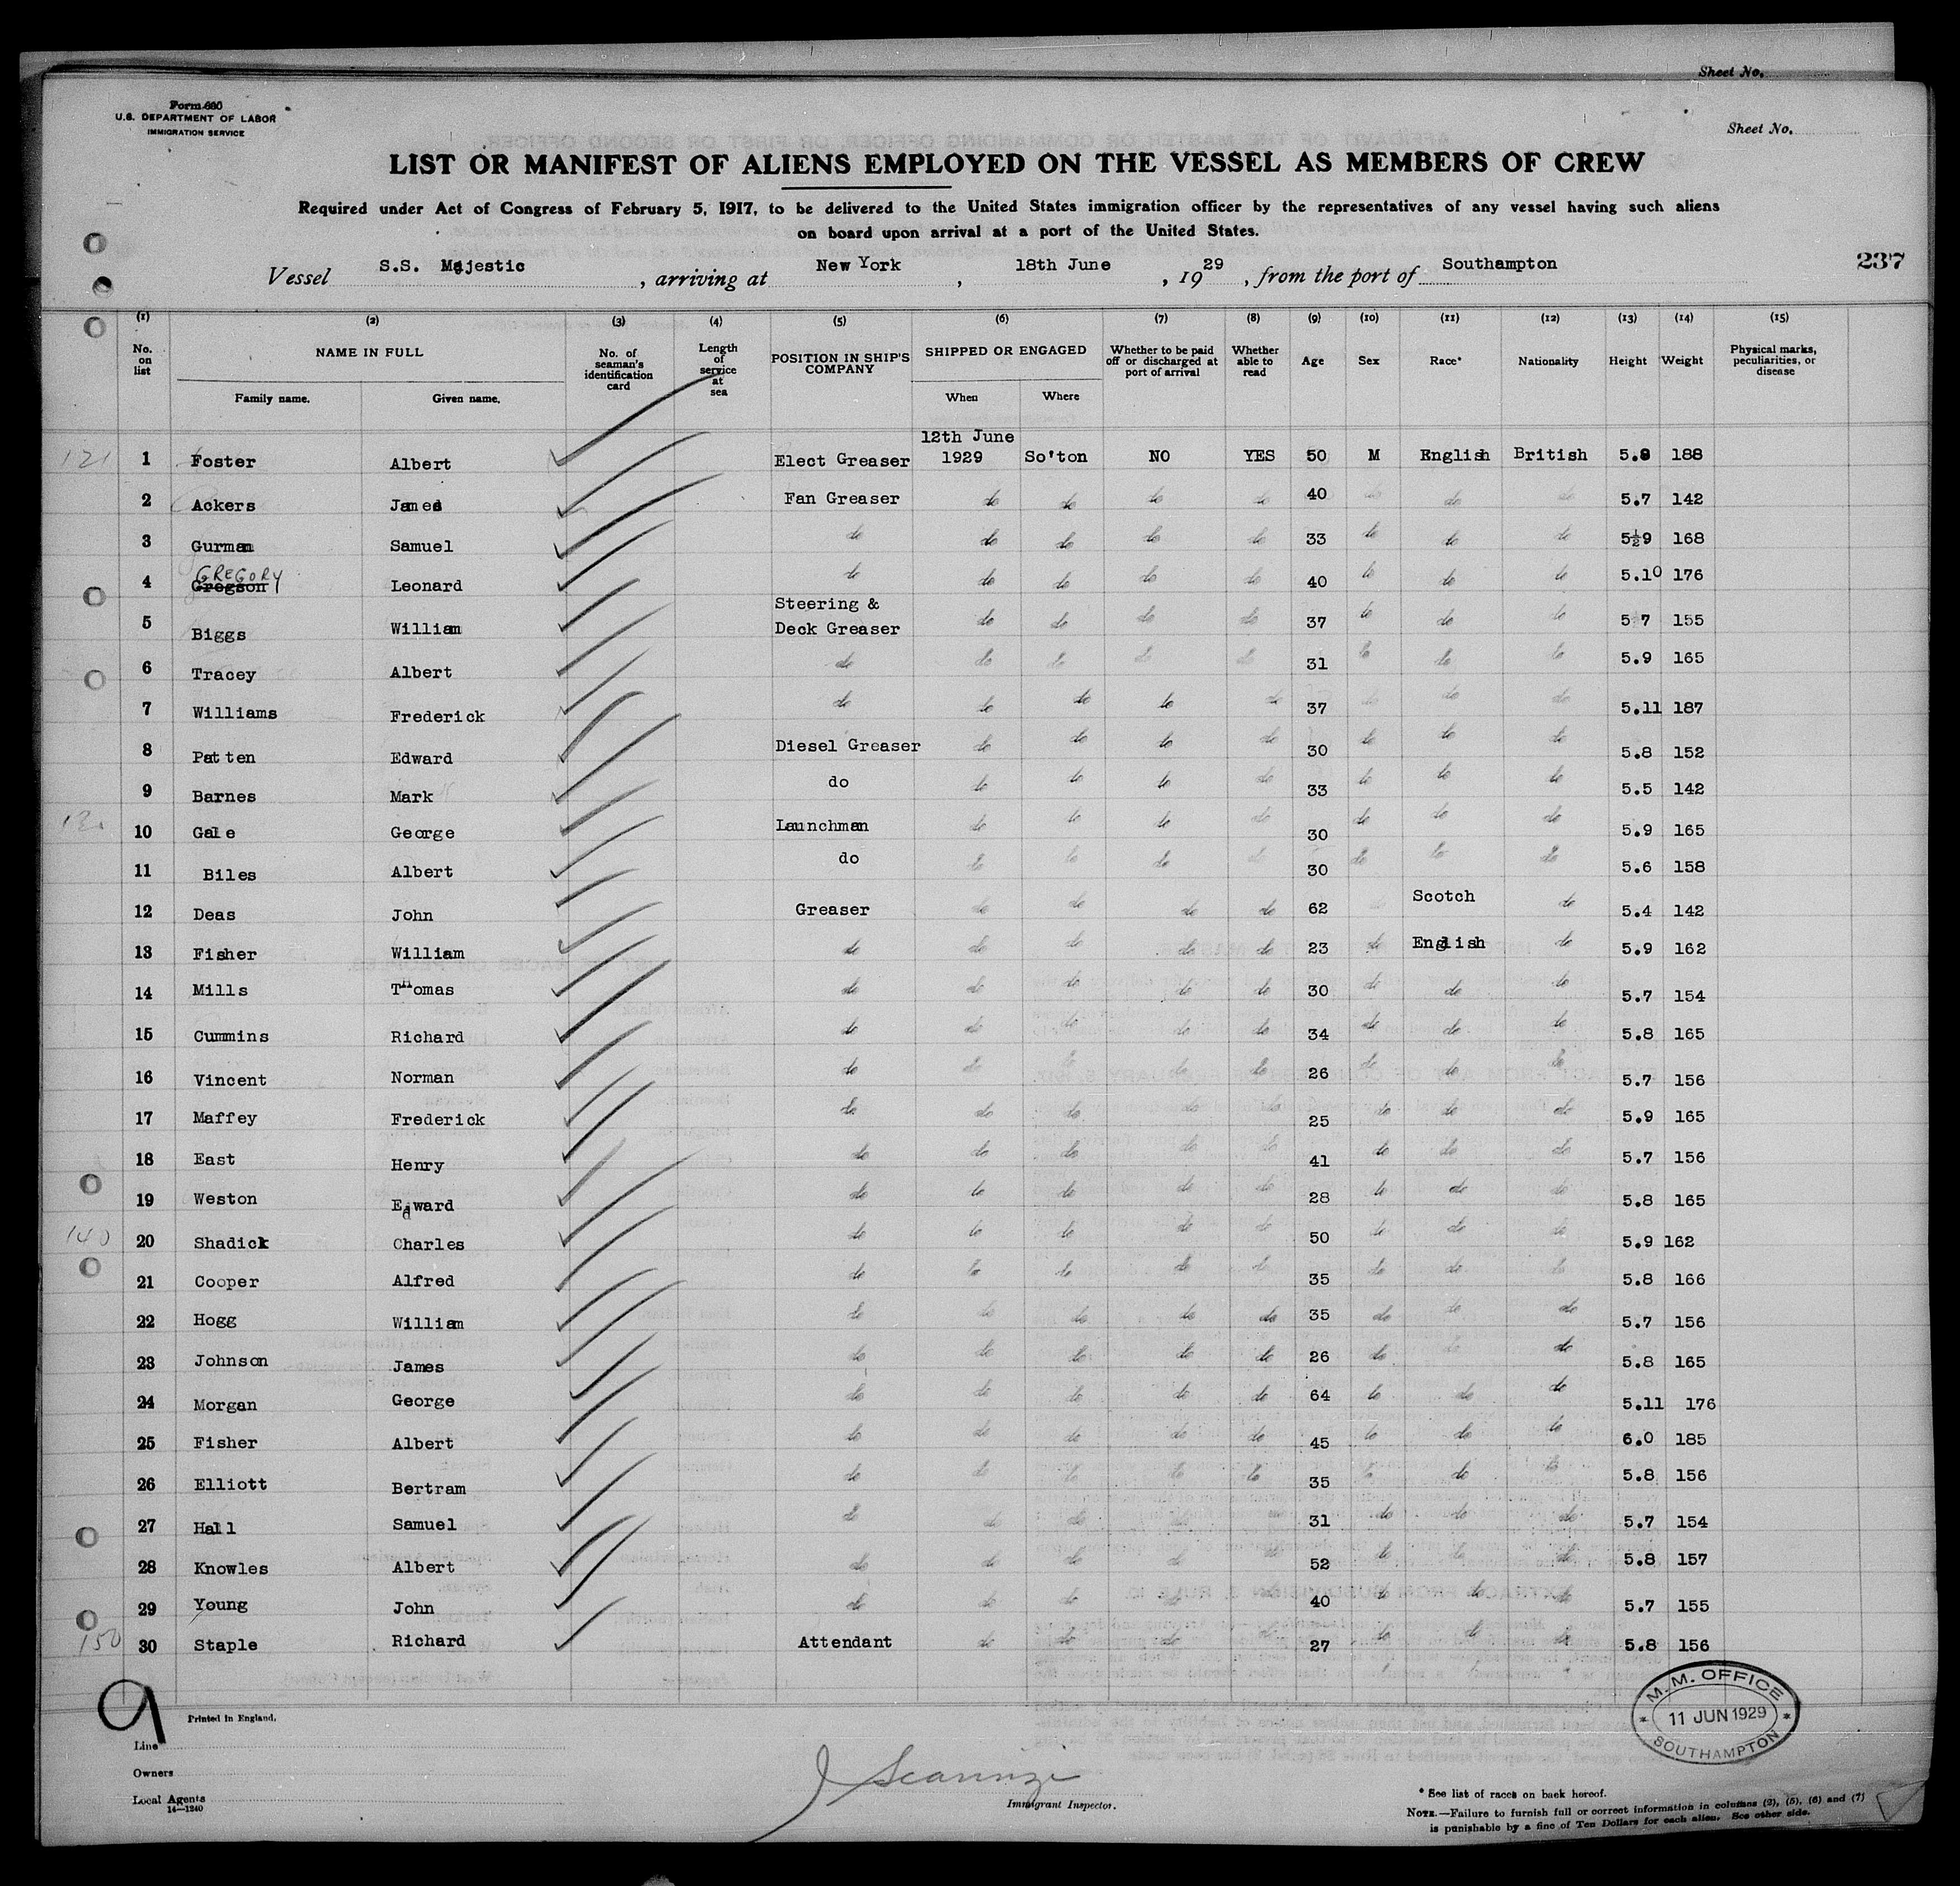 Sheet No.
Form 680
U.S. DEPARTMENT OF LABOR
IMMIGRATION SERVICE
Sheet No.
LIST OR MANIFEST OF ALIENS EMPLOYED ON THE VESSEL AS MEMBERS OF CREW
Required under Act of Congress of February 5, 1917, to be delivered to the United States immigration officer by the representatives of any vessel having such aliens
on board upon arrival at a port of the United States.
Vessel S.S. Majestic, arriving at New York, 18th June, 1929, from the port of Southampton
237
(1) (2) (3) (4) (5) (6) (7) (8) (9) (10) (11) (12) (13) (14) (15)
No. on list NAME IN FULL Family name. Given name. No. of seaman's identification card Length of service at sea POSITION IN SHIP'S COMPANY SHIPPED OR ENGAGED When Where Whether to be paid off or discharged at port of arrival Whether able to read Age Sex Race* Nationality Height Weight Physical marks, peculiarities, or disease
12th June
121 1 Foster Albert Elect Greaser 1929 So'ton NO YES 50 M English British 5.8 188
2 Ackers James Fan Greaser do do do do 40 do do do 5.7 142
3 Gurman Samuel do do do do do 33 do do do 5½9 168
GREGORY
4 Gregson Leonard do do do do do 40 do do do 5.10 176
Steering &
5 Biggs William Deck Greaser do do do do 37 do do do 5 7 155
6 Tracey Albert do do do do do 31 do do do 5.9 165
7 Williams Frederick do do do do do 37 do do do 5.11 187
8 Patten Edward Diesel Greaser do do do do 30 do do do 5.8 152
9 Barnes Mark do do do do do 33 do do do 5.5 142
10 Gale George Launchman do do do do 30 do do do 5.9 165
11 Biles Albert do do do do do 30 do do do 5.6 158
12 Deas John Greaser do do do do 62 do Scotch do 5.4 142
13 Fisher William do do do do do 23 do English do 5.9 162
14 Mills Thomas do do do do do 30 do do do 5.7 154
15 Cummins Richard do do do do do 34 do do do 5.8 165
16 Vincent Norman do do do do do 26 do do do 5.7 156
17 Maffey Frederick do do do do do 25 do do do 5.9 165
18 East Henry do do do do do 41 do do do 5.7 156
19 Weston Edward do do do do do 28 do do do 5.8 165
140 20 Shadick Charles do do do do do 50 do do do 5.9 162
21 Cooper Alfred do do do do do 35 do do do 5.8 166
22 Hogg William do do do do do 35 do do do 5.7 156
23 Johnson James do do do do do 26 do do do 5.8 165
24 Morgan George do do do do do 64 do do do 5.11 176
25 Fisher Albert do do do do do 45 do do do 6.0 185
26 Elliott Bertram do do do do do 35 do do do 5.8 156
27 Hall Samuel do do do do do 31 do do do 5.7 154
28 Knowles Albert do do do do do 52 do do do 5.8 157
29 Young John do do do do do 40 do do do 5.7 155
150 30 Staple Richard Attendant do do do do 27 do do do 5.8 156
9
Printed in England.
Line
Owners
Local Agents
14—1240
Immigrant Inspector.
M.M. OFFICE
* 11 JUN 1929 *
SOUTHAMPTON
* See list of races on back hereof.
NOTE.—Failure to furnish full or correct information in columns (2), (5), (6) and (7)
is punishable by a fine of Ten Dollars for each alien. See other side.